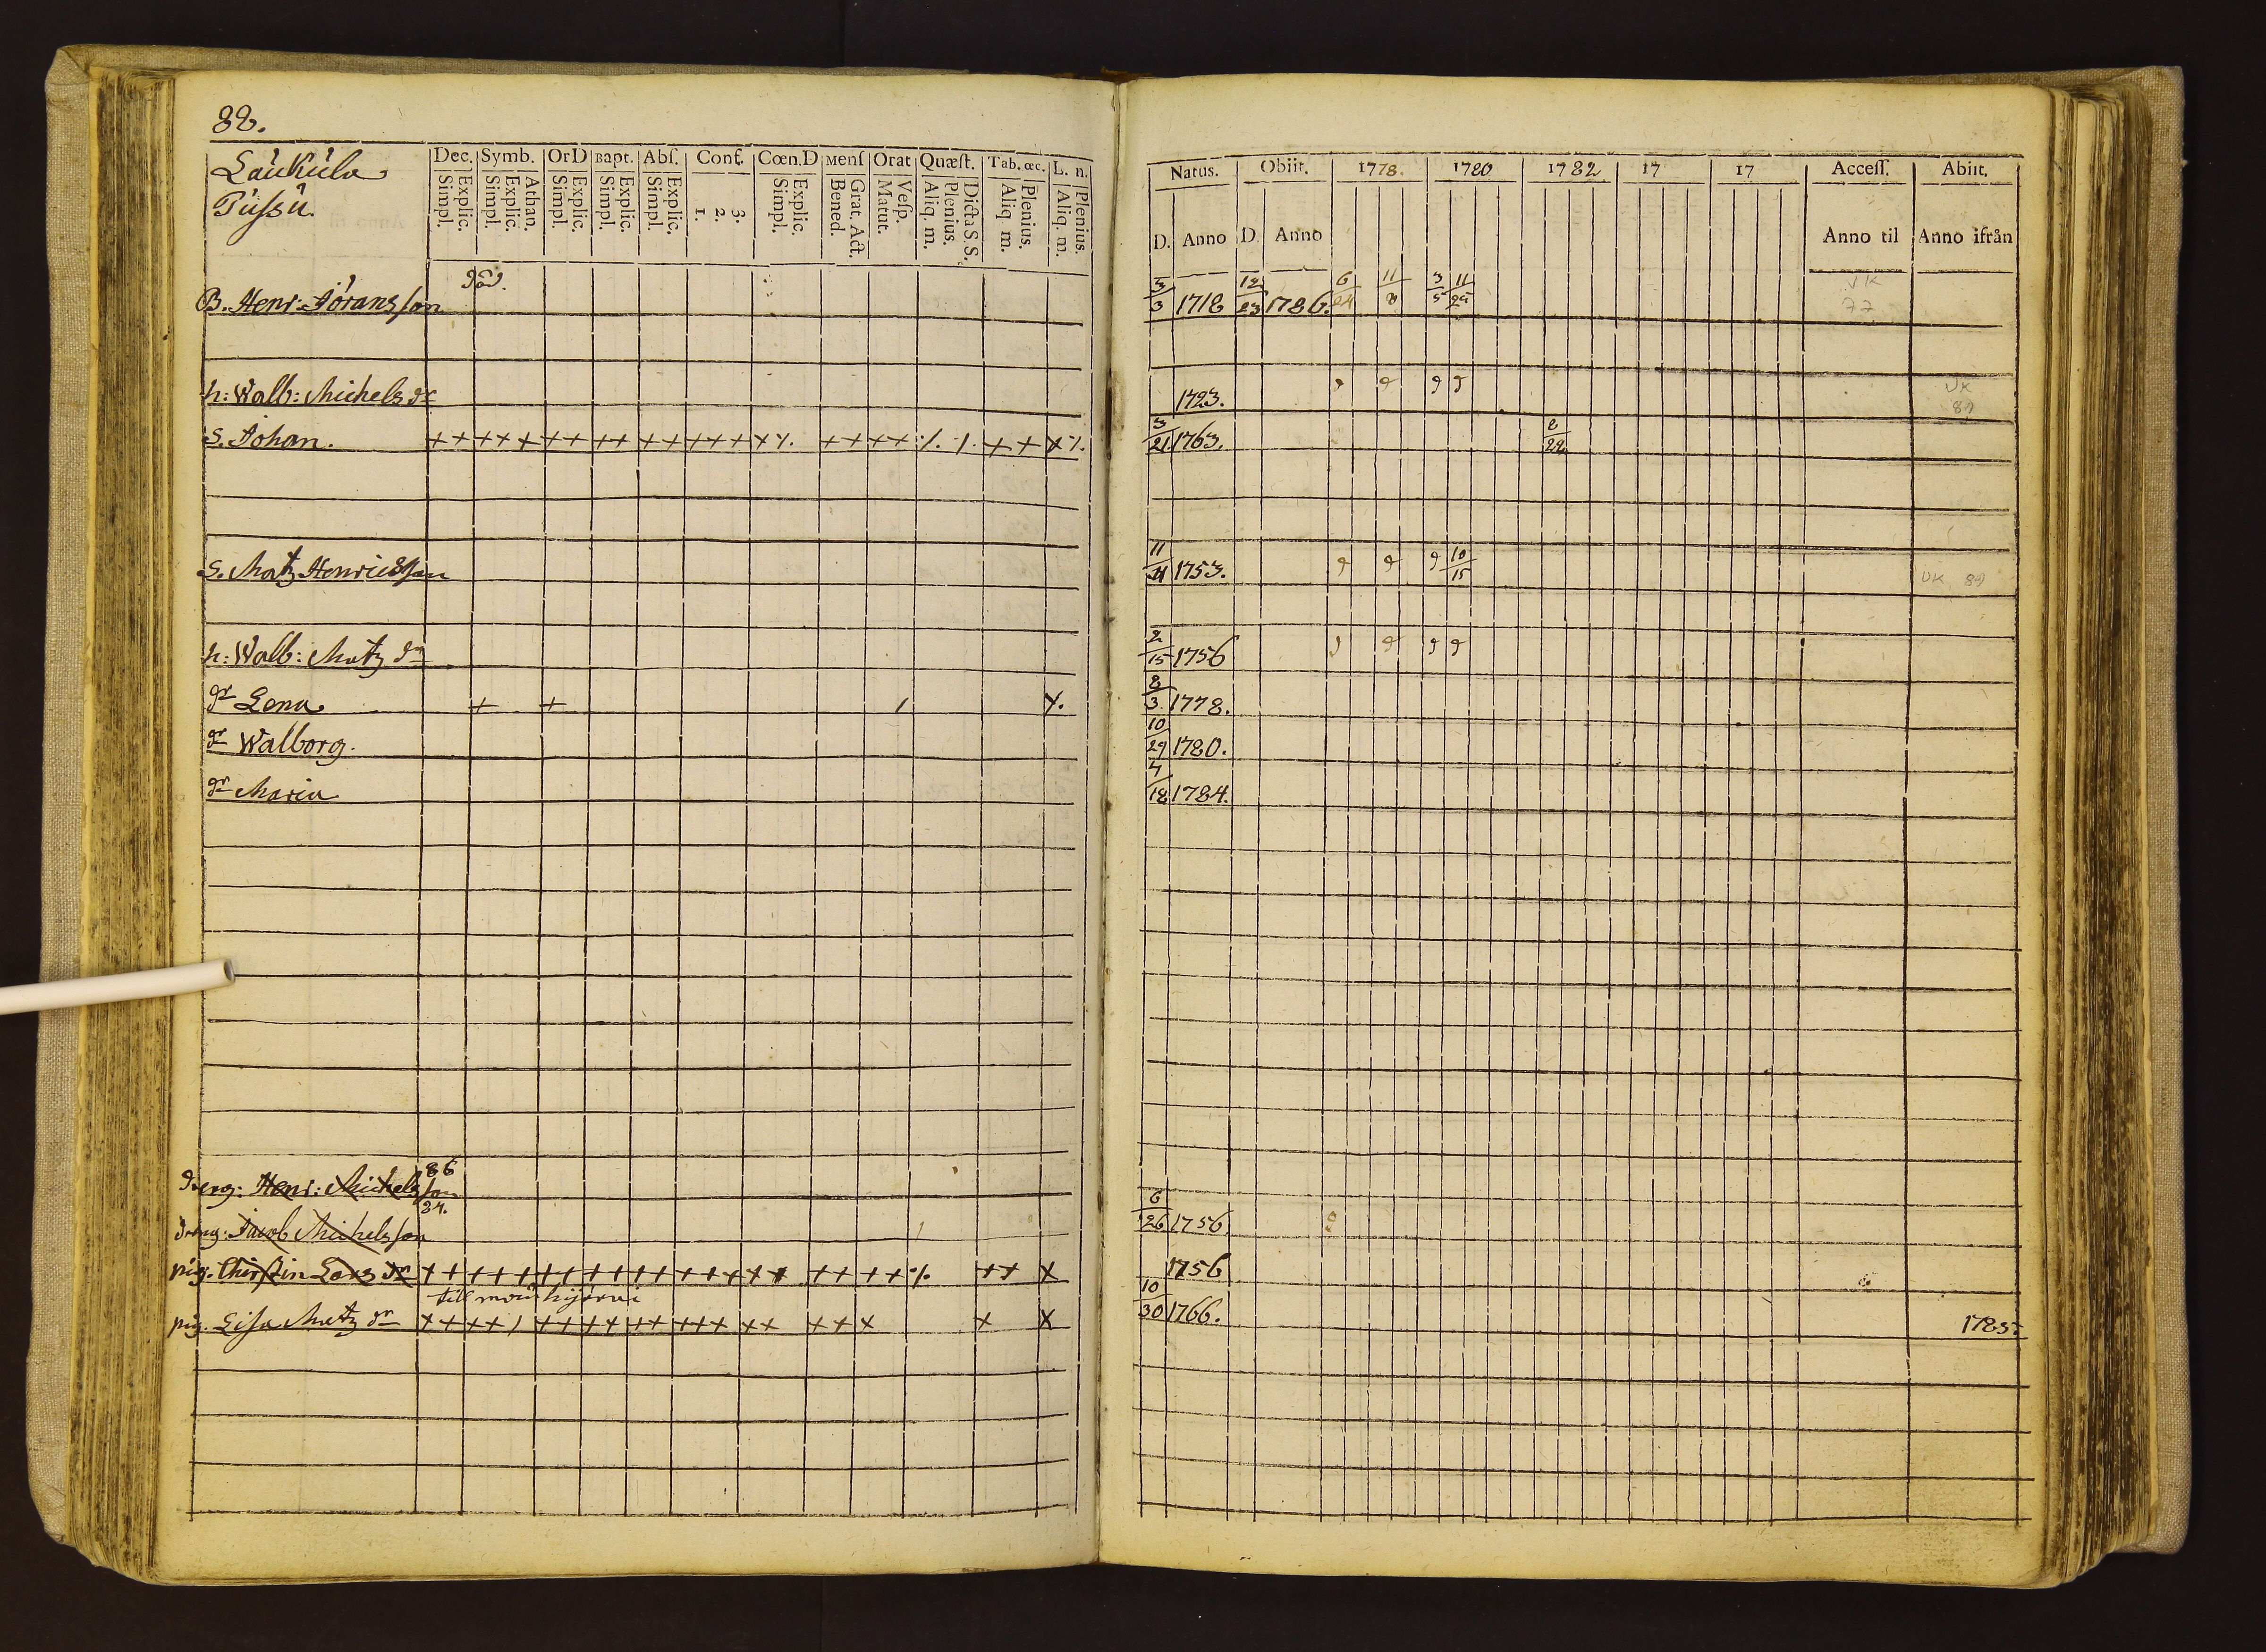 88.
Laukula
Pussu.
Dec. Symb. OrD Bapt. Abſ. Conf. Cœn.D Menſ Orat Quæſt. Tab. œc. L. n.
Explic. Simpl. Athan. Explic. Simpl. Explic. Simpl. Explic. Simpl. Explic. Simpl. 3. 2. 1. Explic. Simpl. Grat. Act. Bened. Veſp. Matut. Dicta S. S. Plenius. Aliq. m. Plenius. Aliq m. Plenius. Aliq. m.
död.
B. Henr: Jöransson
h: Walb: Michels dr
S. Johan. + + + + + + + + + + + + + + x + + + + + + x
S. Matz Henricsson
h: Walb: Matz dr
dr Lena + + /
dr Walborg.
dr Maria
86
dreng: Henr: Michelsson
84.
dreng: Jacob Michelsson
pig. Chirstin Lars dr + + + + + + + + + + + + + + + + + + + + + + + x
till mouhijärvi
pig. Lisa Matz dr + + + + / + + + + + + + + + + + + + x x x
Natus. Obiit. 1778. 1780 1782 17 17 Acceſſ. Abiit.
D. Anno D. Anno Anno til Anno ifrån
3/3 1718 12/23 1786. 6/24 11/8 3/5 11/25 VK 77
1723. VK
3/21 1763. 8/28
11/21 1753. 10/15 VK
2/15 1756
8/3. 1778.
10/29 1780.
4/18 1784.
6/26 1756.
1756
10/30 1766. 1785.